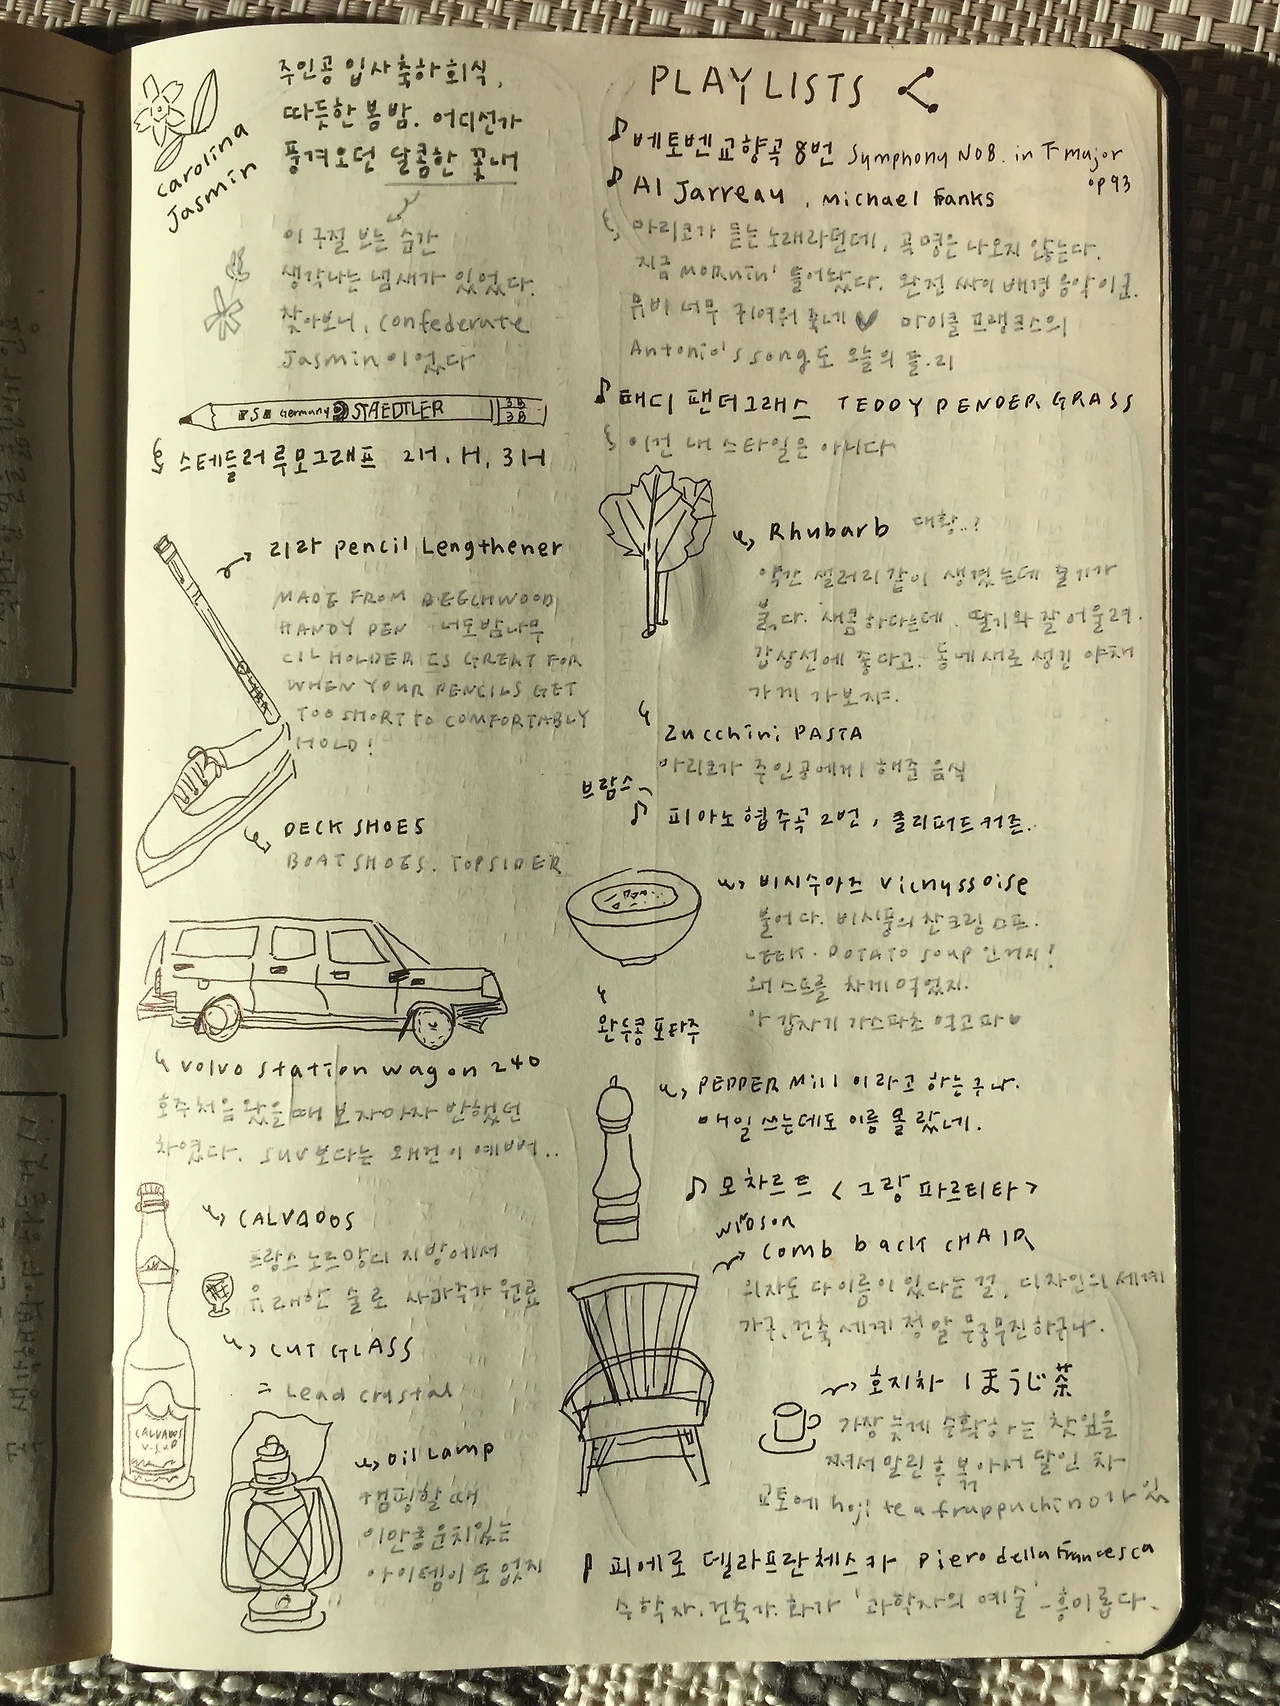 carolina
Jasmin
주인공 입사 축하 회식,
따듯한 봄밤. 어디선가
풍겨오던 달콤한 꽃내
이 구절 보는 순간
생각나는 냄새가 있었다.
찾아보니, confederate
Jasmin이었다
Germany STAEDTLER 3B 3B
스테들러 루모그래프 2H, H, 3H
리라 pencil Lengthener
MADE FROM BEECHWOOD,
HANDY PEN 너도밤나무
CIL HOLDER IS GREAT FOR
WHEN YOUR PENCILS GET
TOO SHORT to COMFORTABLY
HOLD!
DECK SHOES
BOAT SHOES. TOPSIDER
volvo station wagon 240
호주 처음 왔을 때 보자마자 반했던
차였다. SUV보다는 왜건이 예뻐..
CALVADOS
프랑스 노르망디 지방에서
유래한 술로 사과주가 원료
CUT GLASS
= Lead crystal
CALVADOS
V.S.O.P
oil Lamp
캠핑할 때
이만큼 운치있는
아이템이 또 없지
PLAYLISTS
베토벤 교향곡 8번 Symphony No8. in F major
op93
Al Jarreau, michael Franks
마리코가 듣는 노래라던데, 곡명은 나오지 않는다.
지금 mornin' 들어봤다. 완전 싸이 배경음악이고.
뮤비 너무 귀여워 좋네 마이클 프랭크스의
Antonio's song도 오늘의 플.리
테디 팬더그래스 TEDDY PENDER GRASS
이건 내 스타일은 아니다
Rhubarb 대황..?
약간 샐러리같이 생겼는데 줄기가
붉다. 새콤하다는데, 딸기와 잘 어울려.
갑상선에 좋다고. 동네 새로 생긴 야채
가게 가보자.
zucchini PASTA
마리코가 주인공에게 해준 음식
브람스
피아노 협주곡 2번, 클리퍼드 커즌.
비시수아즈 vichyssoise
불어다. 비시풍의 찬 크림 스프.
LEEK. POTATO soup 인거지!
왜 스프를 차게 먹었지.
아 갑자기 가스파초 먹고파
완두콩 포타주
PEPPER Mill 이라고 하는구나.
매일 쓰는데도 이름 몰랐네.
모차르트 <그랑 파르티타>
windsor
comb back CHAIR
의자도 다 이름이 있다는 걸, 디자인의 세계
가구, 건축 세계 정말 무궁무진하구나.
호지차 ほうじ茶
가장 늦게 수확하는 찻잎을
쪄서 말린 후 볶아서 달인 차
교토에 hoji tea frappuchino가 있
피에로 델라프란체스카 Piero della francesca
수학자. 건축가. 화가 '과학자의 예술' - 흥미롭다.